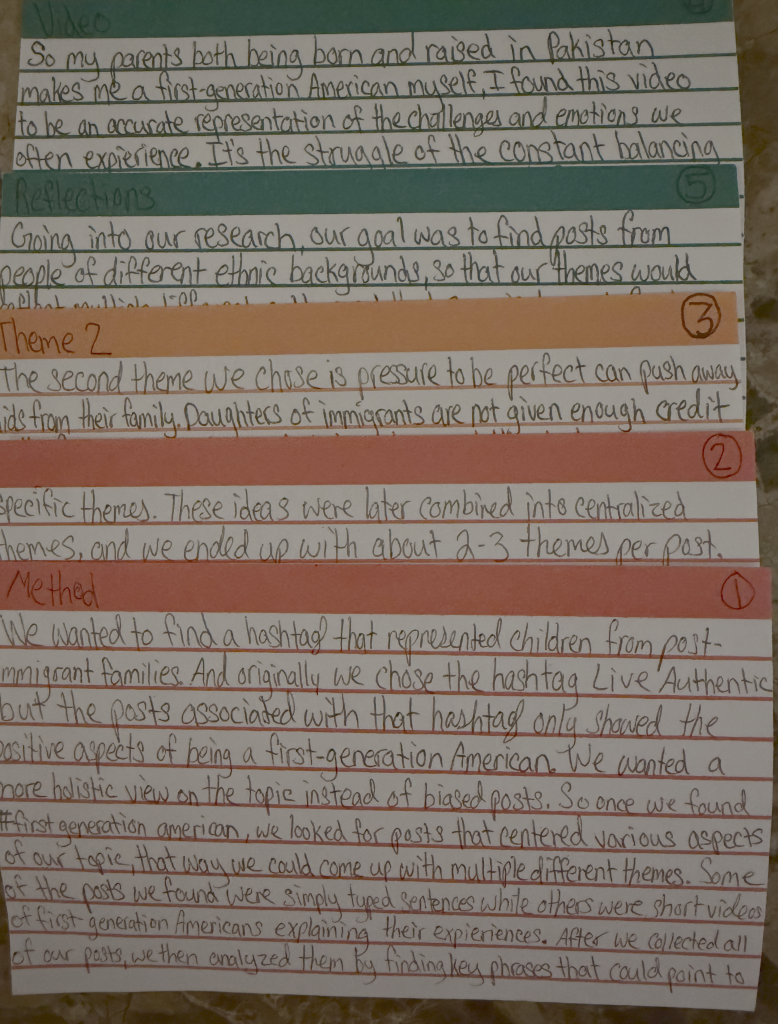 Video 4
So my parents both being born and raised in Pakistan
makes me a first-generation American myself, I found this video
to be an accurate representation of the challenges and emotions we
often expierience. It's the struggle of the constant balancing
Reflections 5
Going into our research, our goal was to find posts from
people of different ethnic backgrounds, so that our themes would
Theme 2 3
The second theme we chose is pressure to be perfect can push away
ids from their family. Daughters of immigrants are not given enough credit
2
specific themes. These ideas were later combined into centralized
hemes, and we ended up with about 2-3 themes per post.
Method 1
We wanted to find a hashtag that represented children from post-
mmigrant families. And originally we chose the hashtag Live Authentic
but the posts associated with that hashtag only showed the
ositive aspects of being a first-generation American. We wanted a
more holistic view on the topic instead of biased posts. So once we found
#first generation american, we looked for posts that centered various aspects
of our topic, that way we could come up with multiple different themes. Some
of the posts we found were simply typed sentences while others were short videos
of first generation Americans explaining their expieriences. After we collected all
of our posts, we then analyzed them by finding key phrases that could point to